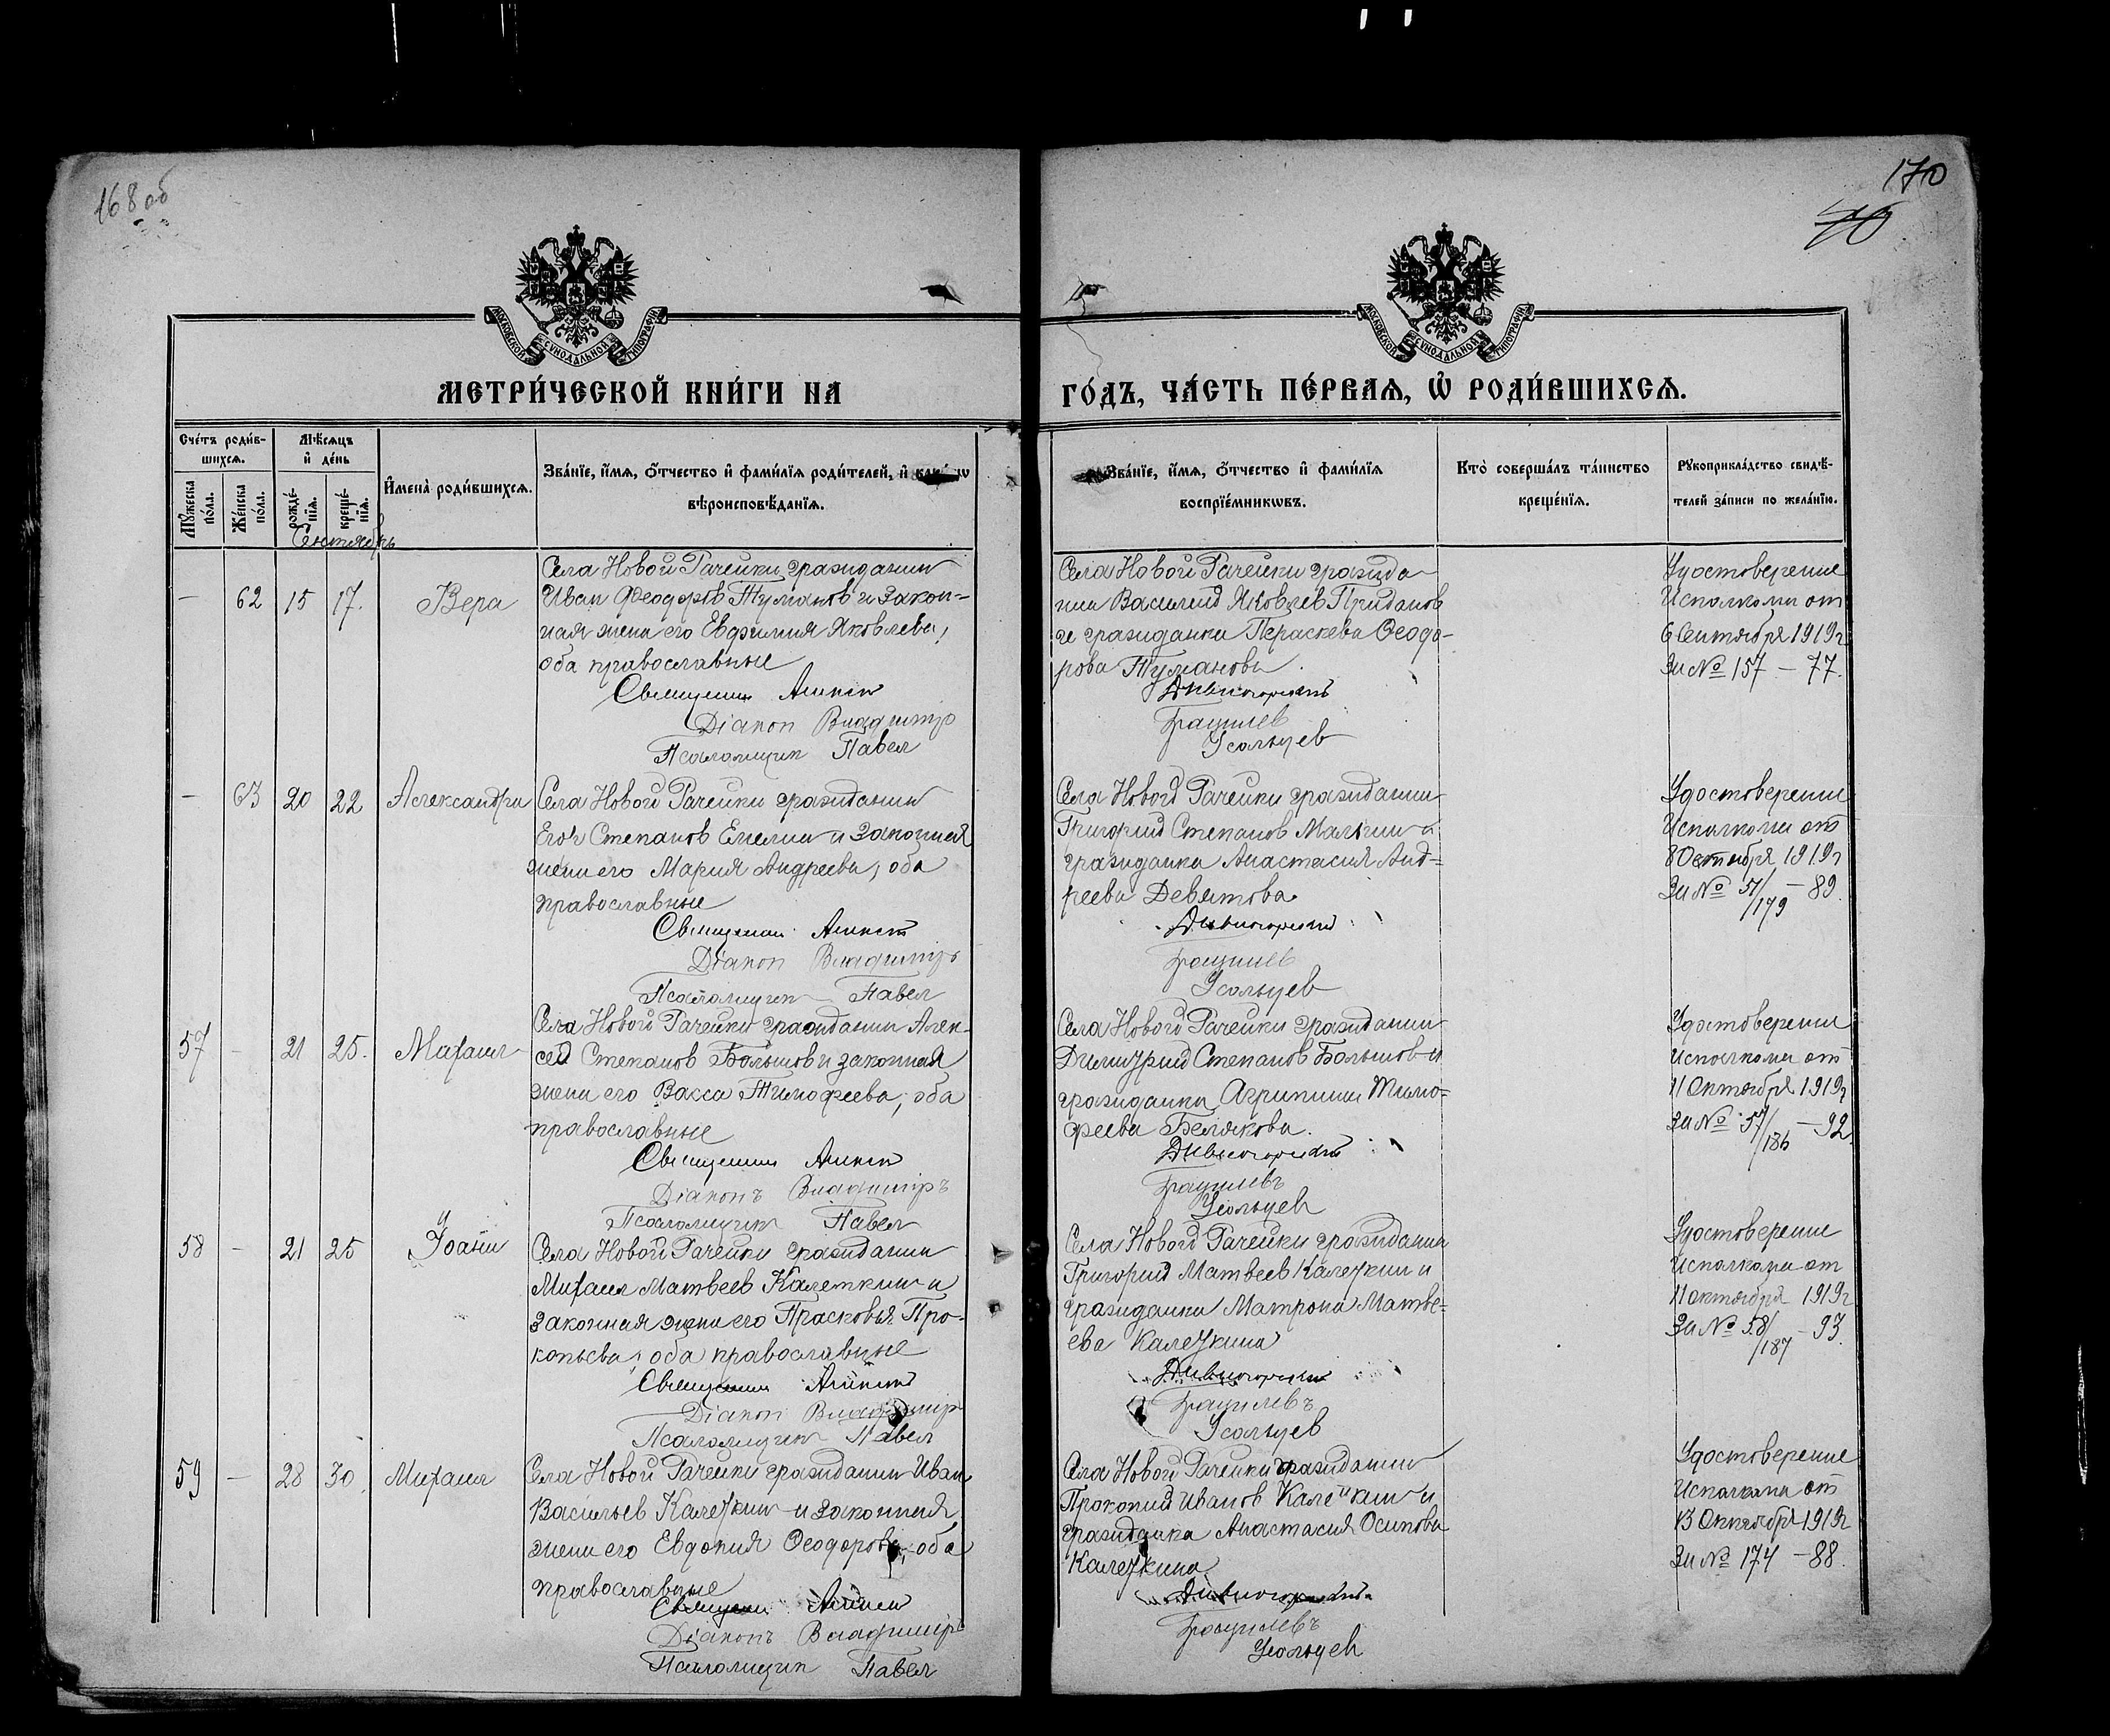 168 об
170
МОСКОВСКОЙ СѴНОДАЛЬНОЙ ТИПОГРАФІИ
МОСКОВСКОЙ СѴНОДАЛЬНОЙ ТИПОГРАФІИ
МЕТРИ́ЧЕСКОЙ КНИ́ГИ НА
ГО́ДЪ, ЧА́СТЬ ПЕ́РВАѦ, Ѡ РОДИ́ВШИХСѦ.
Сче́тъ роди́в-
шихсѧ.
Мѣ́сѧцъ
и҆ де́нь
Мꙋ́жеска
по́ла.
Же́нска
по́ла.
рожде́-
нїѧ.
креще́-
нїѧ.
И҆мена̀ роди́вшихсѧ.
Зва́нїе, и҆́мѧ, ѻ҆́тчество и҆ фами́лїѧ роди́телей, и҆
вѣроисповѣ́данїѧ.
Зва́нїе, и҆́мѧ, ѻ҆́тчество и҆ фами́лїѧ
воспрїе́мникѡвъ.
Кто̀ соверша́лъ та́инство
креще́нїѧ.
Рꙋкоприкла́дство свидѣ́-
телей за́писи по жела́нїю.
Сентябрь
— 62 15 17. Вера
Села Новой Рачейки гражданин
Иван Феодоров Туманов и закон-
ная жена его Евфимия Яковлева,
оба православные
Священник
Диакон Владимир
Псаломщик Павел
Села Новой Рачейки гражда-
нин Василий Яковлев Приданов
и гражданка Параскева Феодо-
рова Туманова.
Дивногорский
Усольцев
Удостоверение
Исполкома от
6 Сентября 1919 г
За № 157 — 77.
— 63 20 22 Александра
Села Новой Рачейки гражданин
Егор Степанов Емелин и законная
жена его Мария Андреева, оба
православные
Священник
Диакон Владимир
Псаломщик Павел
Села Новой Рачейки гражданин
Григорий Степанов Малкин и
гражданка Анастасия Анд=
реева Девятова.
Дивногорский
Усольцев
Удостоверение
Исполкома от
8 Октября 1919 г
За № 51/179 — 89.
57 — 21 25. Михаил
Села Новой Рачейки гражданин Алек-
сей Степанов Большов и законная
жена его Васса Тимофеева, оба
православные
Священник
Диаконъ Владимиръ
Псаломщик Павел
Села Новой Рачейки гражданин
Димитрий Степанов Большов и
гражданка Агрипина Тимо=
феева Белякова.
Дивногорский
Усольцев
Удостоверение
исполкома от
11 Октября 1919 г
За № 57/186 — 92.
58 — 21 25 Иоанн
Села Новой Рачейки гражданин
Михаил Матвеев Калеткин и
законная жена его Прасковья Про-
копьева, оба православные
Священник
Диакон Владимир
Псаломщик Павел
Села Новой Рачейки гражданин
Григорий Матвеев Калеткин и
гражданка Матрона Матве=
ева Калеткина
Дивногорский
Усольцев
Удостоверение
Исполкома от
11 октября 1919 г
За № 58/187 — 93.
59 — 28 30. Михаил
Села Новой Рачейки гражданин Иван
Васильев Калеткин и законная
жена его Евдокия Феодорова, оба
православные
Священник
Диаконъ Владимиръ
Псаломщик Павел
Села Новой Рачейки гражданин
Прокопий Иванов Калеткин и
гражданка Анастасия Осипова
Калеткина
Дивногорский
Усольцев
Удостоверение
Исполкома от
13 Октября 1919 г
За № 174 — 88.